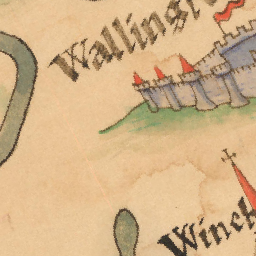 Wallinsf
Winch